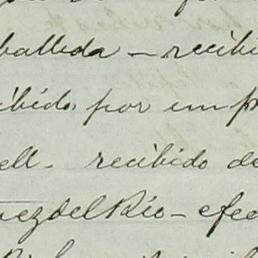 balleda - recibi
cibido, por un p
ell - recibido de
uez del Rio - efec